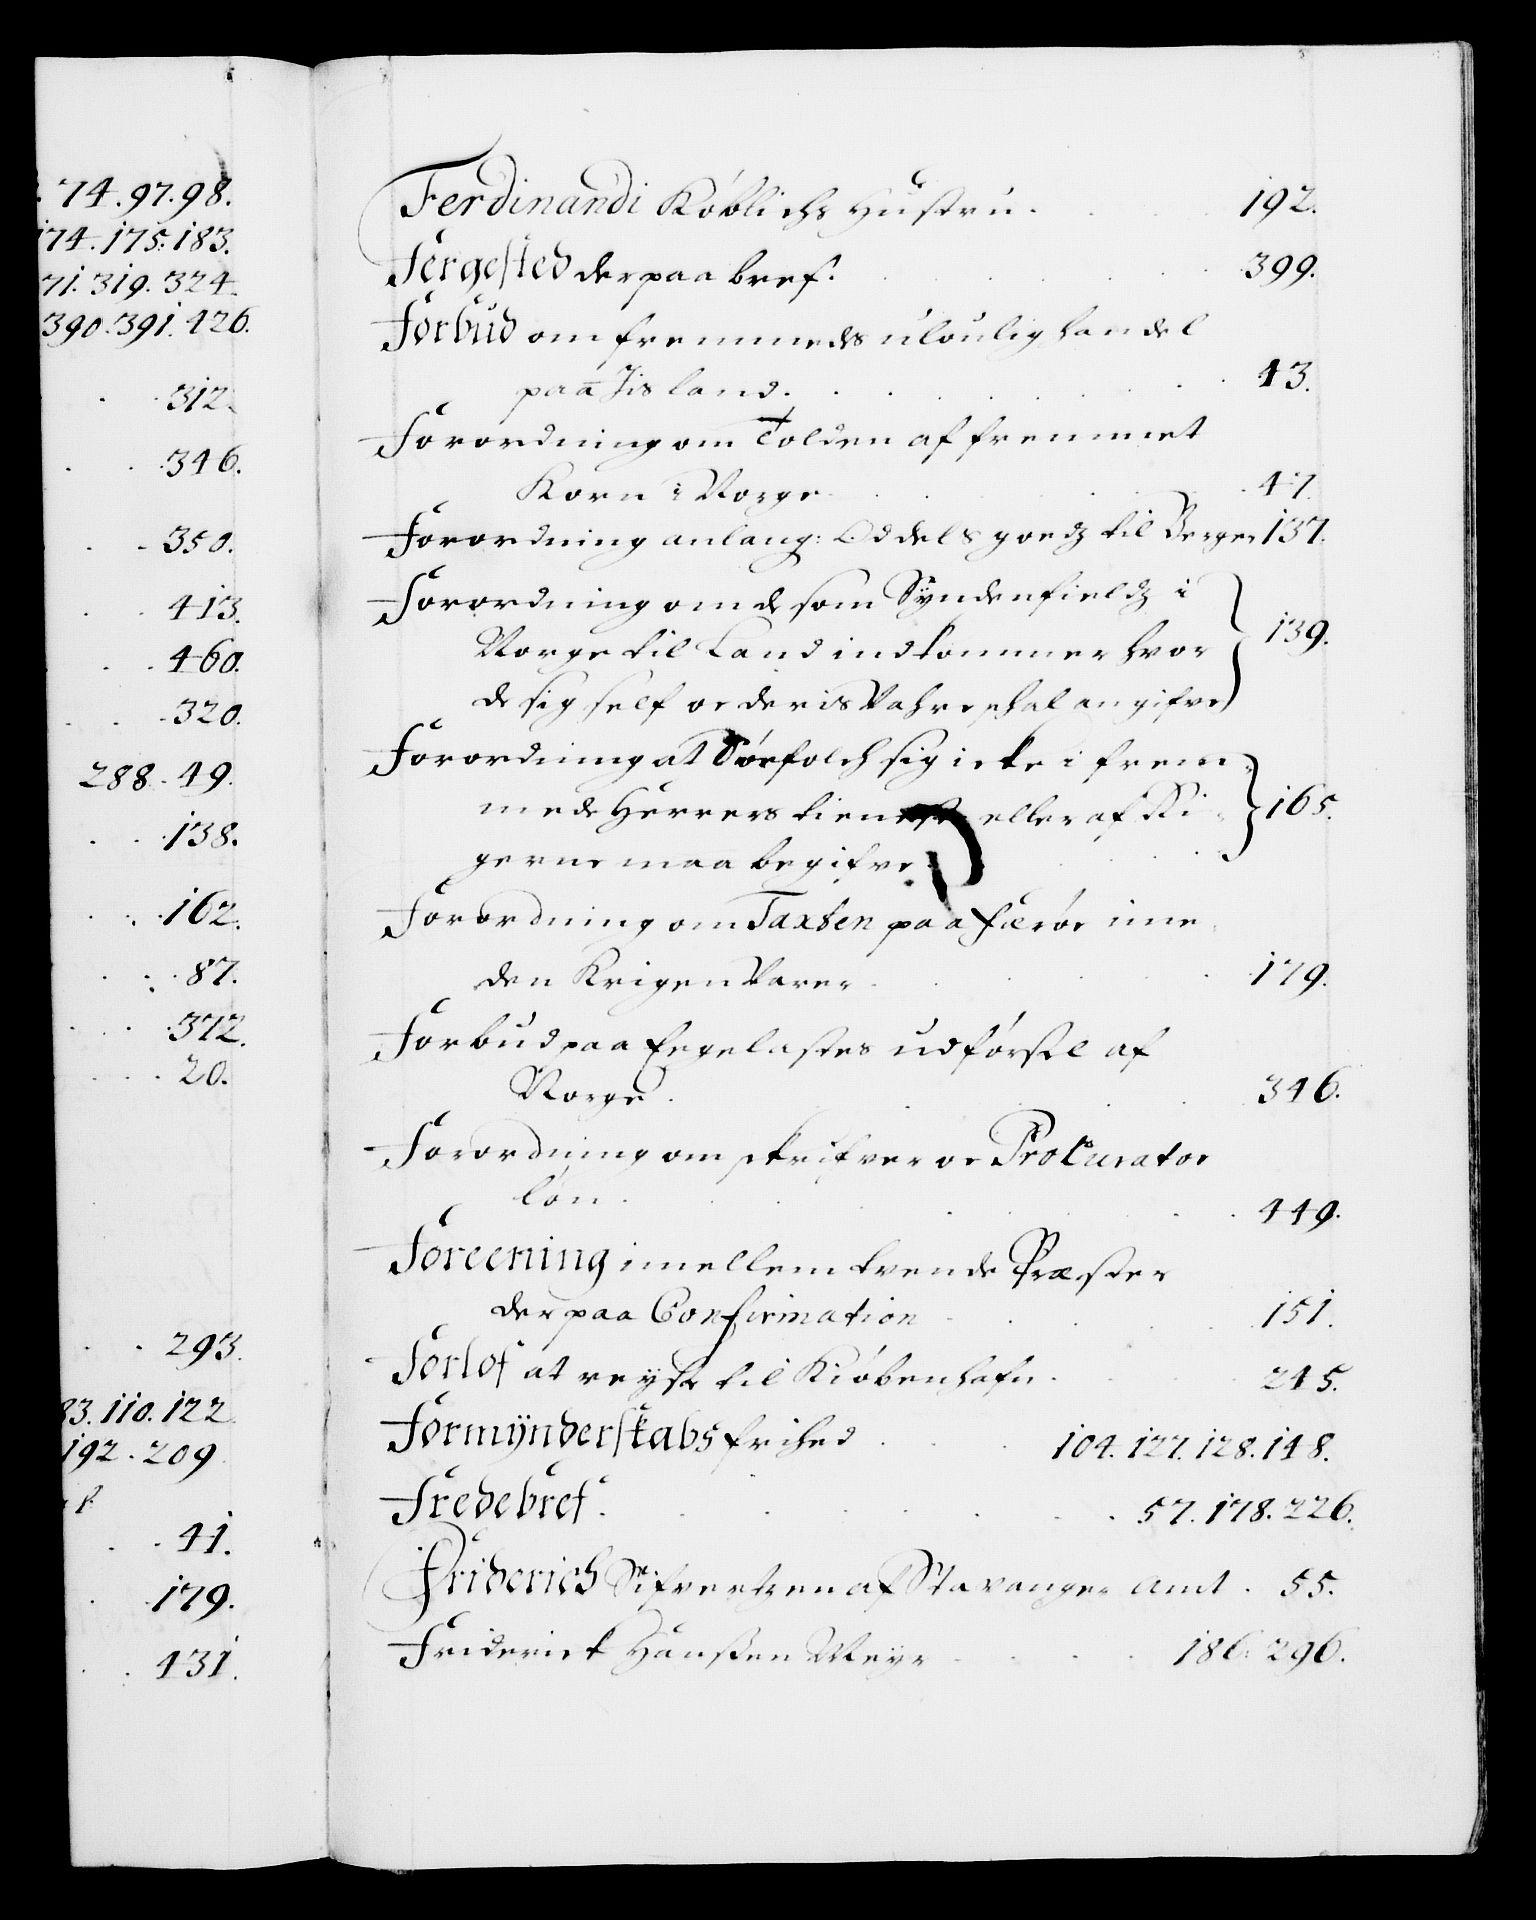 74. 97. 98.
174. 175. 183.
71. 319. 324.
390. 391. 426.
312.
346.
350.
413.
460.
320.
288. 49.
138.
162.
87.
372.
20.
293.
83. 110. 122.
192. 209
41.
179.
431.
Ferdinandi Köblichs Hustru. 192.
Fergested derpaa bref. 399.
Forbud om fremmedes uloulig handel
paa Jisland. 43.
Forordning om Tolden af fremmet
Korn i Norge 47.
Forordning anlang: Oddels goedz til Bergen 137.
Forordning om de som Syndenfieldz i
Norge til Land indkommer hvor
de sig self oc deris Vahre schal angifve 139.
Forordning at Söefolch sig icke i frem-
mede Herrers tieniste eller af Ri-
gerne maa begifve. 165.
Forordning om Taxten paa Færöe ime-
den Krigen varer 179.
Forbud paa Eegelastes udförsel af
Norge. 346.
Forordning om skrifver oc Procurator
lön. 449.
Foreening imellem tvende Præster
derpaa Confirmation 151.
Forlof at reyse til Kiöbenhafn. 245.
Formÿnderskabs frihed 104. 127. 128. 148.
Fredebref. 57. 178. 226.
Friderich Sifvertzen af Stavanger Amt. 55.
Friderick Hanßen Meyr 186. 296.